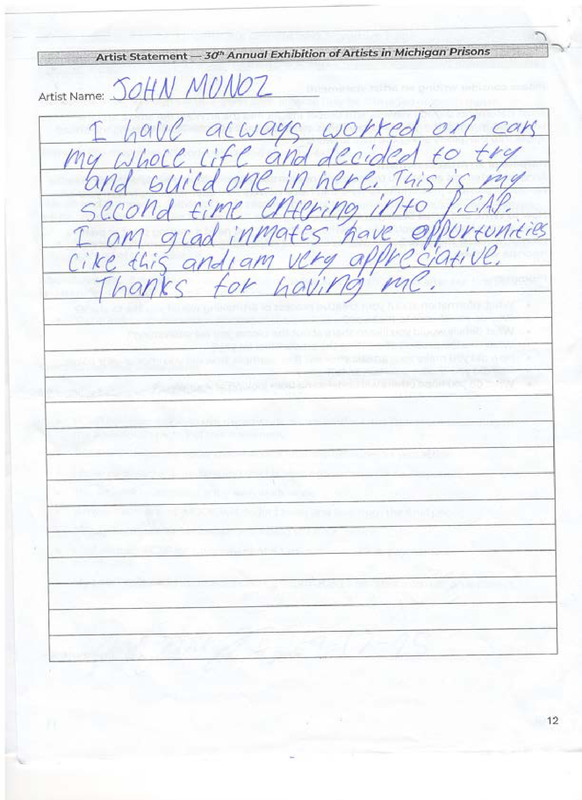 Artist Statement — 30th Annual Exhibition of Artists in Michigan Prisons
Artist Name: JOHN MUNOZ
I have always worked on cars
my whole life and decided to try
and build one in here. This is my
second time entering into P.C.A.P.
I am glad inmates have opportunities
like this and i am very appreciative.
Thanks for having me.
12